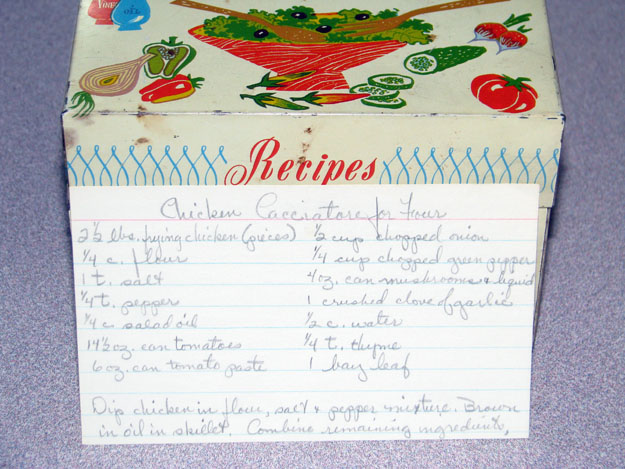 Recipes
Chicken Cacciatore for Four
2½ lbs. frying chicken (pieces)
¼ c. flour
1 t. salt
¼ t. pepper
¼ c. salad oil
14½ oz. can tomatoes
6 oz. can tomato paste
½ cup chopped onion
¼ cup chopped green pepper
4 oz. can mushrooms & liquid
1 crushed clove of garlic
½ c. water
¼ t. thyme
1 bay leaf
Dip chicken in flour, salt & pepper mixture. Brown
in oil in skillet. Combine remaining ingredients,